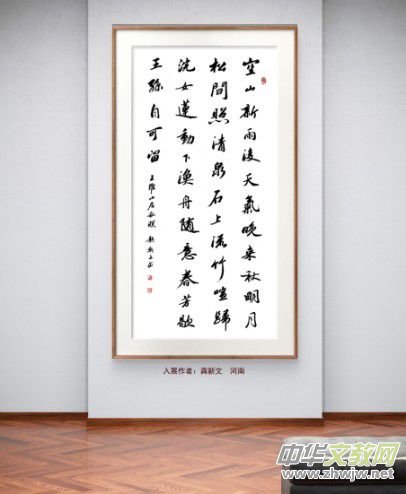 空山新雨後天氣晚来秋明月
松間照清泉石上流竹喧歸
浣女蓮動下漁舟随意春芳歇
王孫自可留
王維山居秋暝
入展作者：龚新文 河南
中华文教网
www.zhwjw.com